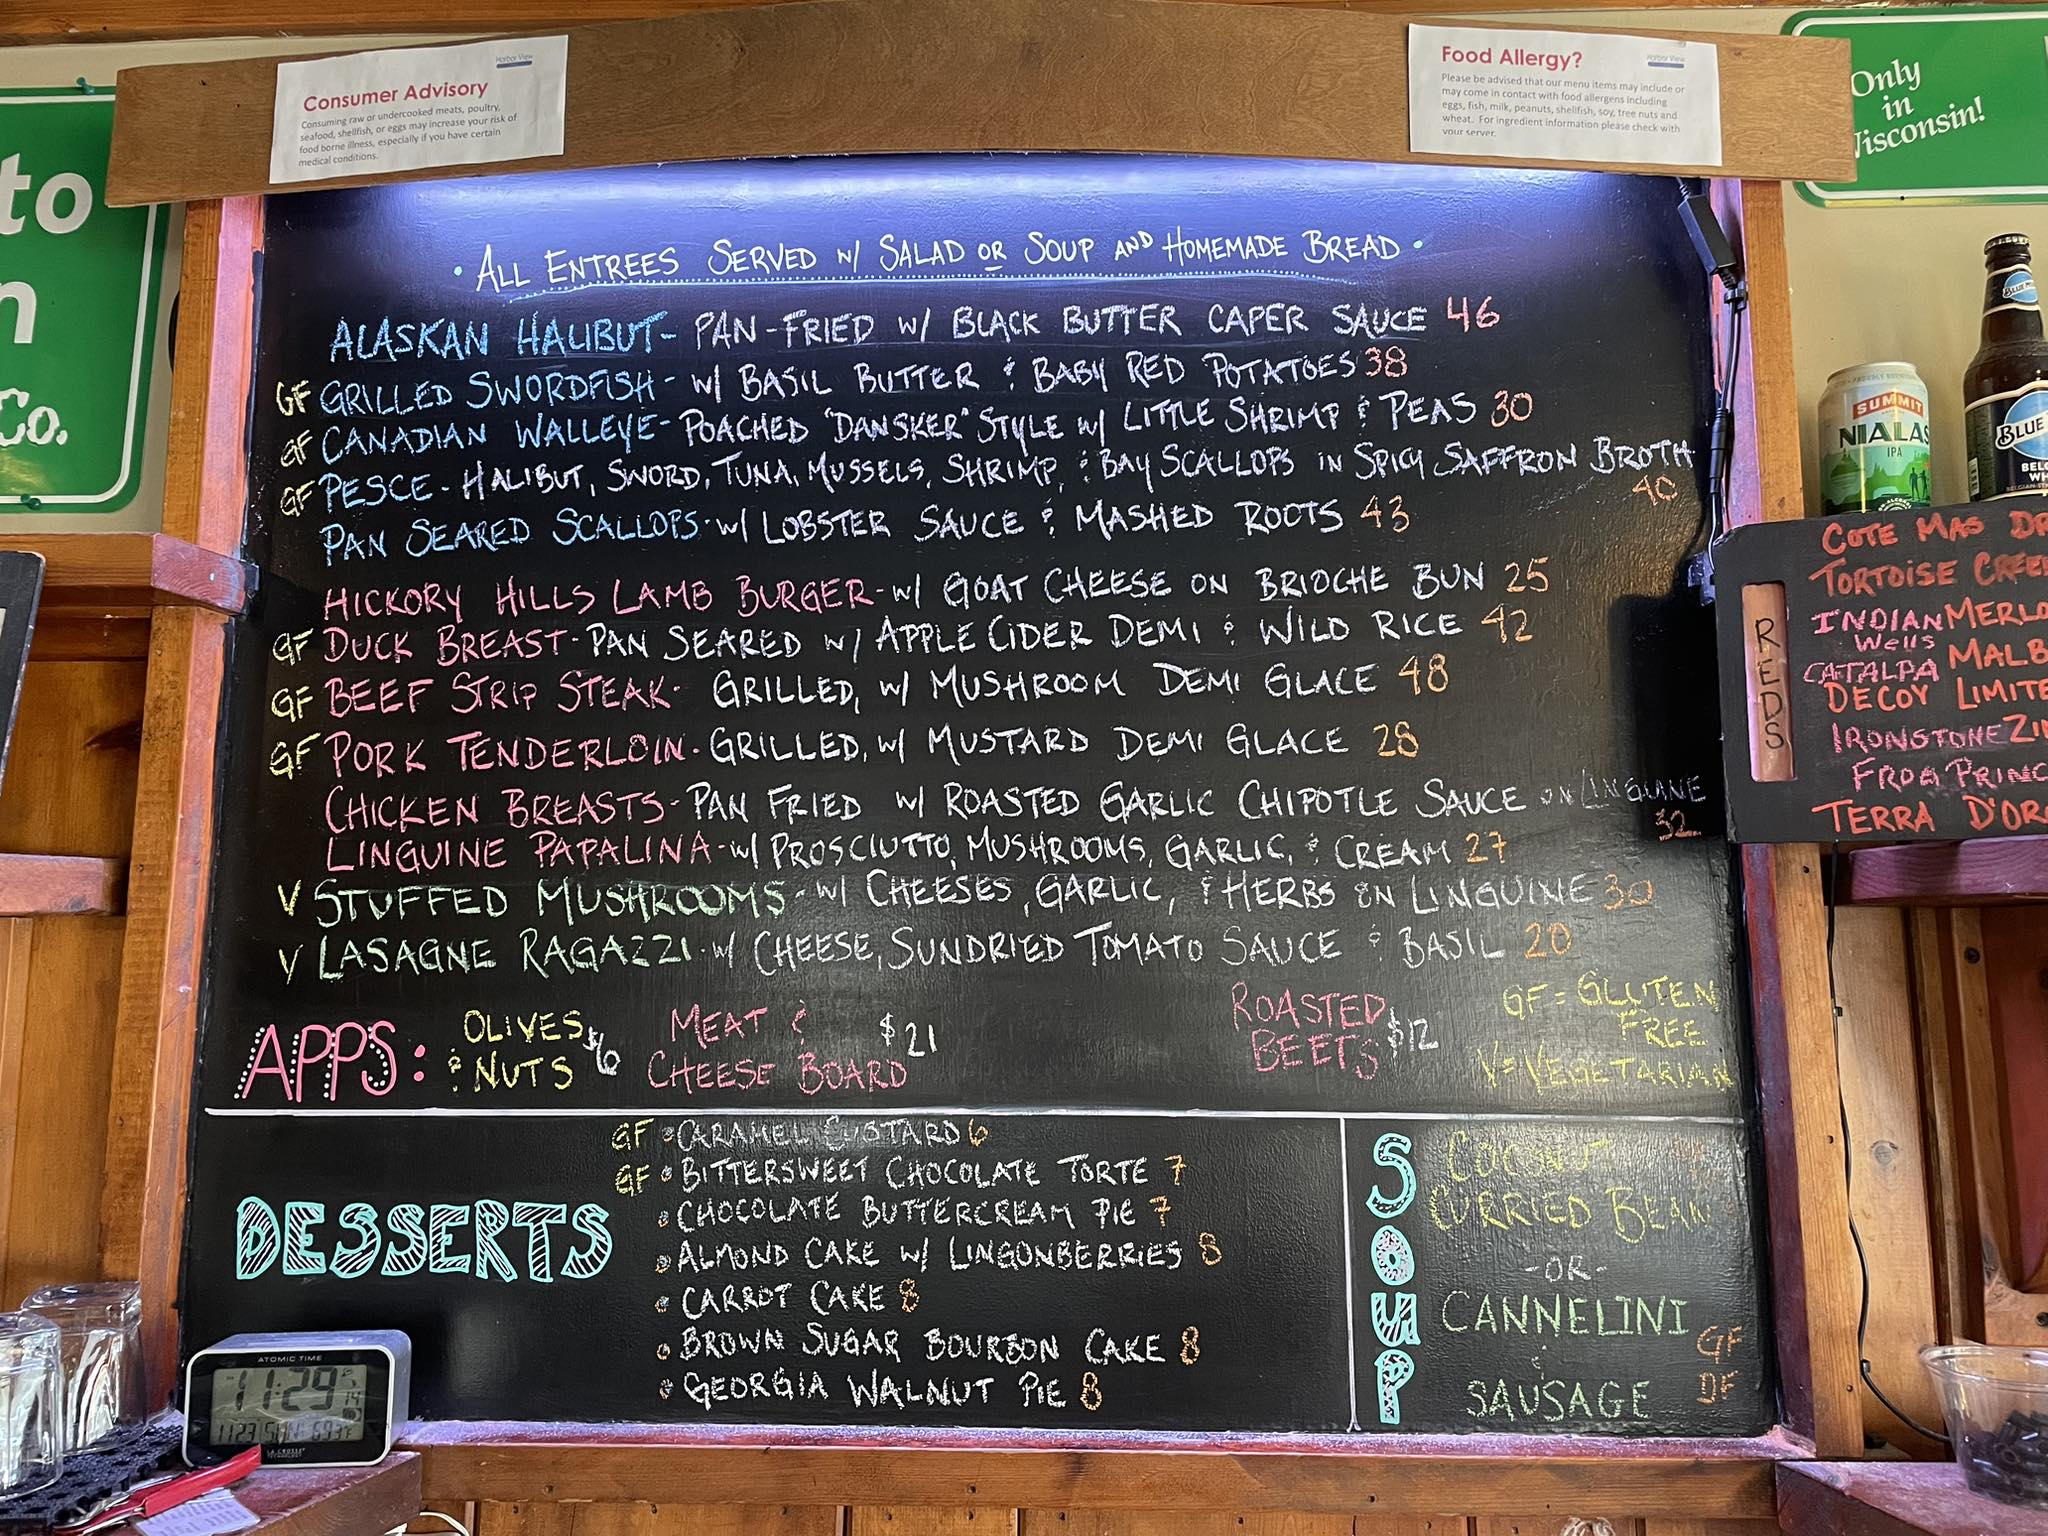 Consumer Advisory
Harbor View
Consuming raw or undercooked meats, poultry,
seafood, shellfish, or eggs may increase your risk of
food borne illness, especially if you have certain
medical conditions.
Food Allergy?
Harbor View
Please be advised that our menu items may include or
may come in contact with food allergens including
eggs, fish, milk, peanuts, shellfish, soy, tree nuts and
wheat. For ingredient information please check with
your server.
Only
in
Wisconsin!
to
n
Co.
• ALL ENTREES SERVED w/ SALAD OR SOUP AND HOMEMADE BREAD •
ALASKAN HALIBUT- PAN-FRIED w/ BLACK BUTTER CAPER SAUCE 46
GF GRILLED SWORDFISH - w/ BASIL BUTTER & BABY RED POTATOES 38
GF CANADIAN WALLEYE- POACHED "DANSKER" STYLE w/ LITTLE SHRIMP & PEAS 30
GF PESCE - HALIBUT, SWORD, TUNA, MUSSELS, SHRIMP, & BAY SCALLOPS IN SPICY SAFFRON BROTH
40
PAN SEARED SCALLOPS- w/ LOBSTER SAUCE & MASHED ROOTS 43
HICKORY HILLS LAMB BURGER- w/ GOAT CHEESE ON BRIOCHE BUN 25
GF DUCK BREAST- PAN SEARED w/ APPLE CIDER DEMI & WILD RICE 42
GF BEEF STRIP STEAK- GRILLED, w/ MUSHROOM DEMI GLACE 48
GF PORK TENDERLOIN- GRILLED, w/ MUSTARD DEMI GLACE 28
CHICKEN BREASTS- PAN FRIED w/ ROASTED GARLIC CHIPOTLE SAUCE ON LINGUINE
32
LINGUINE PAPALINA- w/ PROSCIUTTO, MUSHROOMS, GARLIC, & CREAM 27
V STUFFED MUSHROOMS- w/ CHEESES, GARLIC, & HERBS ON LINGUINE 30
V LASAGNE RAGAZZI- w/ CHEESE, SUNDRIED TOMATO SAUCE & BASIL 20
APPS:
OLIVES
& NUTS $6
MEAT &
CHEESE BOARD $21
ROASTED
BEETS $12
GF = GLUTEN
FREE
V = VEGETARIAN
DESSERTS
GF • CARAMEL CUSTARD 6
GF • BITTERSWEET CHOCOLATE TORTE 7
• CHOCOLATE BUTTERCREAM PIE 7
• ALMOND CAKE w/ LINGONBERRIES 8
• CARROT CAKE 8
• BROWN SUGAR BOURBON CAKE 8
• GEORGIA WALNUT PIE 8
SOUP
COCONUT
CURRIED BEAN
-OR-
CANNELINI
&
SAUSAGE
GF
DF
ATOMIC TIME
11:29
1123 SUN 69.3°F
LA CROSSE
SUMMIT
IPA
BLUE
BELG
WH
REDS
COTE MAS
TORTOISE CREE
INDIAN Wells MERLO
CATALPA MALB
DECOY LIMITE
IRONSTONE ZIN
FROG PRINC
TERRA D'OR